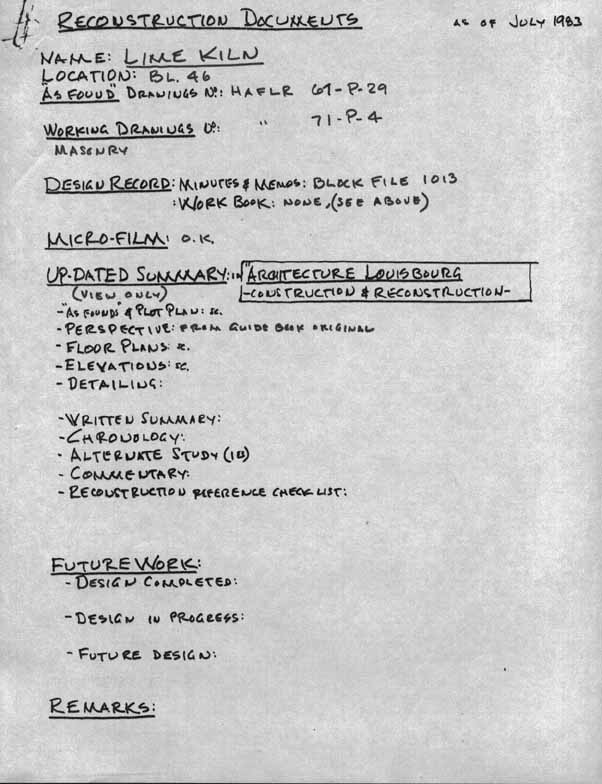 RECONSTRUCTION DOCUMENTS AS OF JULY 1983
NAME: LIME KILN
LOCATION: BL. 46
"AS FOUND" DRAWINGS No: HAFLR 67-P-29
WORKING DRAWINGS No: " 71-P-4
MASONRY
DESIGN RECORD: MINUTES & MEMOS: BLOCK FILE 1013
:WORK BOOK: NONE, (SEE ABOVE)
MICRO-FILM: O.K.
UP-DATED SUMMARY: in "ARCHITECTURE LOUISBOURG
(VIEW ONLY) -CONSTRUCTION & RECONSTRUCTION-
-"AS FOUNDS" & PLOT PLAN: sc.
-PERSPECTIVE: FROM GUIDE BOOK ORIGINAL
- FLOOR PLANS: sc.
-ELEVATIONS: sc.
- DETAILING:
-WRITTEN SUMMARY:
-CHRONOLOGY:
- ALTERNATE STUDY (IB)
- COMMENTARY:
- RECONSTRUCTION REFERENCE CHECK LIST:
FUTURE WORK:
- DESIGN COMPLETED:
- DESIGN IN PROGRESS:
- FUTURE DESIGN:
REMARKS: